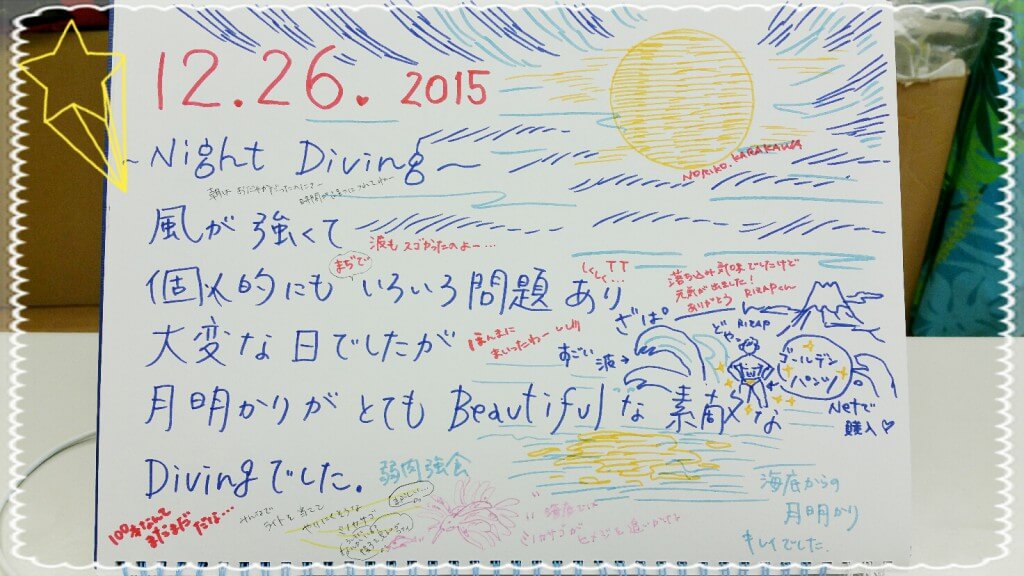 12.26. 2015
~Night Diving~
NORIKO.KARAKAWA
風が強くて
波もスゴかったのよー…
まぢで
個人的にもいろいろ問題あり
しくしく…TT
落ち込み気味でしたけど
元気が出ました!
ありがとう RIZAPくん
大変な日でしたが
ほんまに
まいったわー
ざぱ°
すごい
波→
どやっ
RIZAP
ゴールデン
パンツ
Netで
購入♡
月明かりがとてもBeautifulな素敵な
Divingでした.
弱肉強食
海底からの
月明かり
キレイでした.
100本なんて
まだまだ
だな…
みんなで
ライトを当てて
海底では
ミノカサゴが
ヒメジを追いかけ